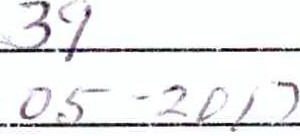 39
05-2017